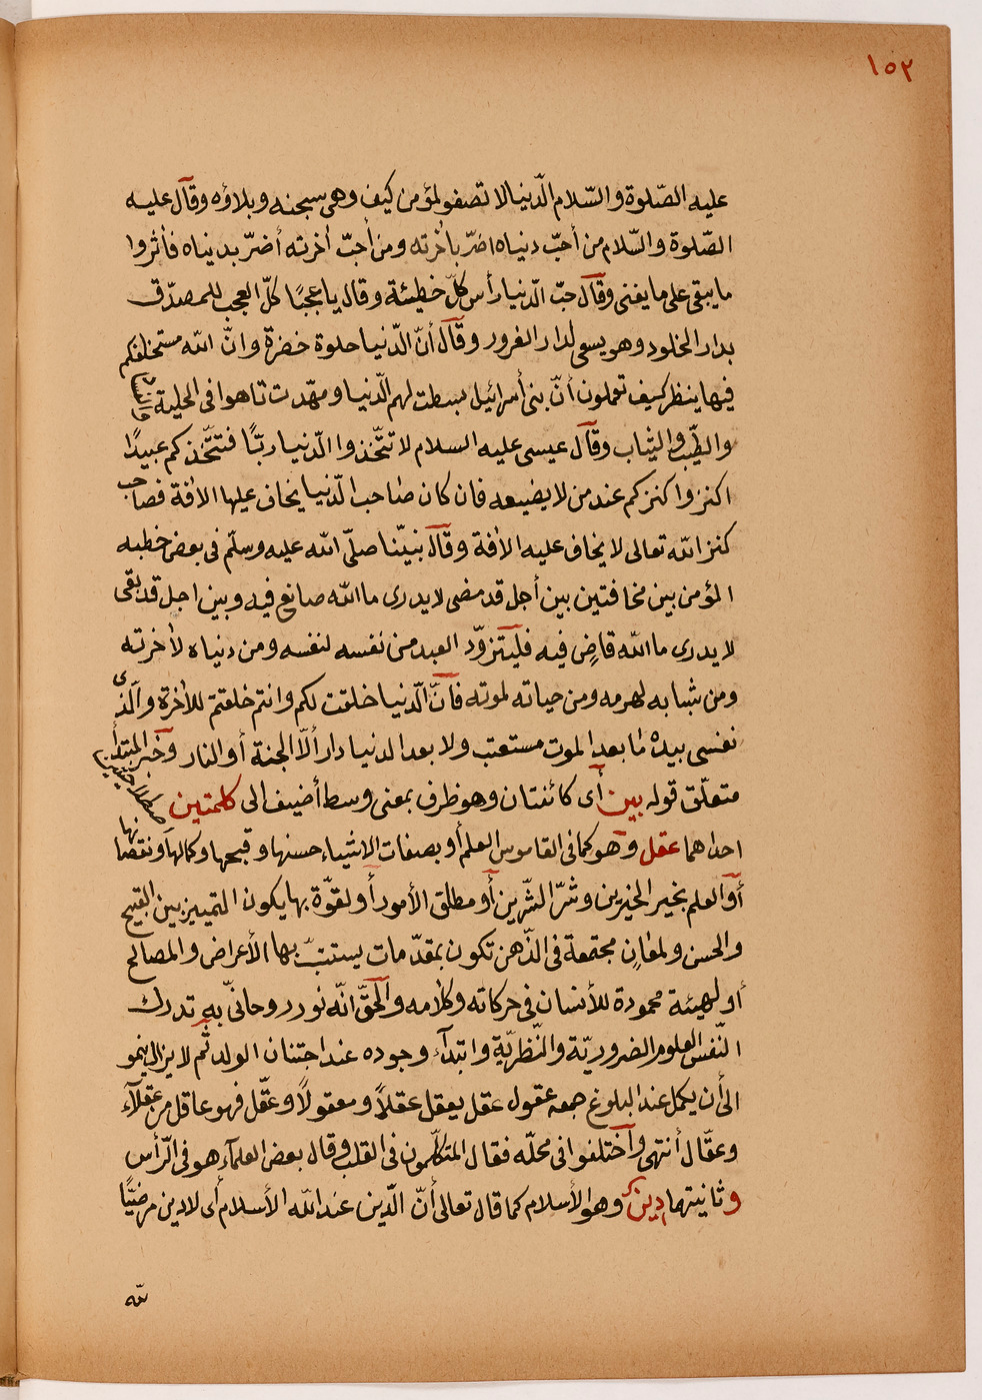 ١٥٢
عليه الصّلوة والسّلام الدّنيا لا تصفو لمؤمن كيف وهى سجنه وبلاؤه وقال عليه
الصّلوة والسّلام من أحبّ دنياه اضرّ باٰخرته ومن أحبّ اٰخرته أضرّ بدنياه فاٰثروا
ما يبقى على ما يفنى وقال حبّ الدّنيا رأس كلّ خطيئة وقال يا عجبًا كلّ العجب للمصدّق
بدار الخلود وهو يسعى لدار الغرور وقال أنّ الدّنيا حلوة خضرة وانّ الله مستخلفكم
فيها ينظر كيف تعملون أنّ بنى أسرائيل بسطت لهم الدّنيا ومهّدت تاهوا فى الحلية والنساء
والطّيب والثياب وقال عيسى عليه السلام لا تتّخذوا الدّنيا ربّا فتتّخذكم عبيدًا
اكنزوا كنزكم عند من لا يضيعه فان كان صاحب الدّنيا يخاف عليها الاٰفة فصاحب
كنز الله تعالى لا يخاف عليه الاٰفة وقال نبيّنا صلّى الله عليه وسلّم فى بعض خطبه
المؤمن بين مخافتين بين أجل قد مضى لا يدرى ما الله صانع فيه وبين اجل قد بقى
لا يدرى ما الله قاضٍ فيه فليتزوّد العبد من نفسه لنفسه ومن دنياه لاٰخرته
ومن شبابه لهرمه ومن حياته لموته فانّ الدّنيا خلقت لكم وانتم خلقتم للاٰخرة والّذى
نفسى بيده ما بعد الموت مستعتب ولا بعد الدنيا دار ألّا الجنة أو النار وخبر المبتدأ
متعلّق قوله بين أى كائنتان وهو ظرف بمعنى وسط أضيف الى كلمتين
احداهما عقل وهو كما فى القاموس العلم أو بصفات الاشياء حسنها وقبحها وكمالها ونقصانها
أو العلم بخير الخيرين وشرّ الشّرين أو مطلق الأمور أو لقوّة بها يكون التمييز بين القبيح
والحسن ولمعانٍ مجتمعة فى الذّهن تكون بمقدّمات يستتبّ بها الأعراض والمصالح
أو لهيئة محمودة للأنسان فى حركاته وكلامه والحقّ انّه نور روحانىّ به تدرك
النّفس العلوم الضروريّة والنّظريّة وابتدآء وجوده عند اجتنان الولد ثم لا يزال ينمو
الى أن يكمل عند البلوغ جمعه عقول عقل يعقل عقلاً ومعقولاً وعقّل فهو عاقل من عقلآء
وعقّال أنتهى وأختلفوا فى محلّه فقال المتكلّمون فى القلب وقال بعض العلمآء هو فى الرّأس
وثانيتهما دين وهو الأسلام كما قال تعالى أنّ الدّين عند الله الأسلام أى لا دين مرضيّا
لله